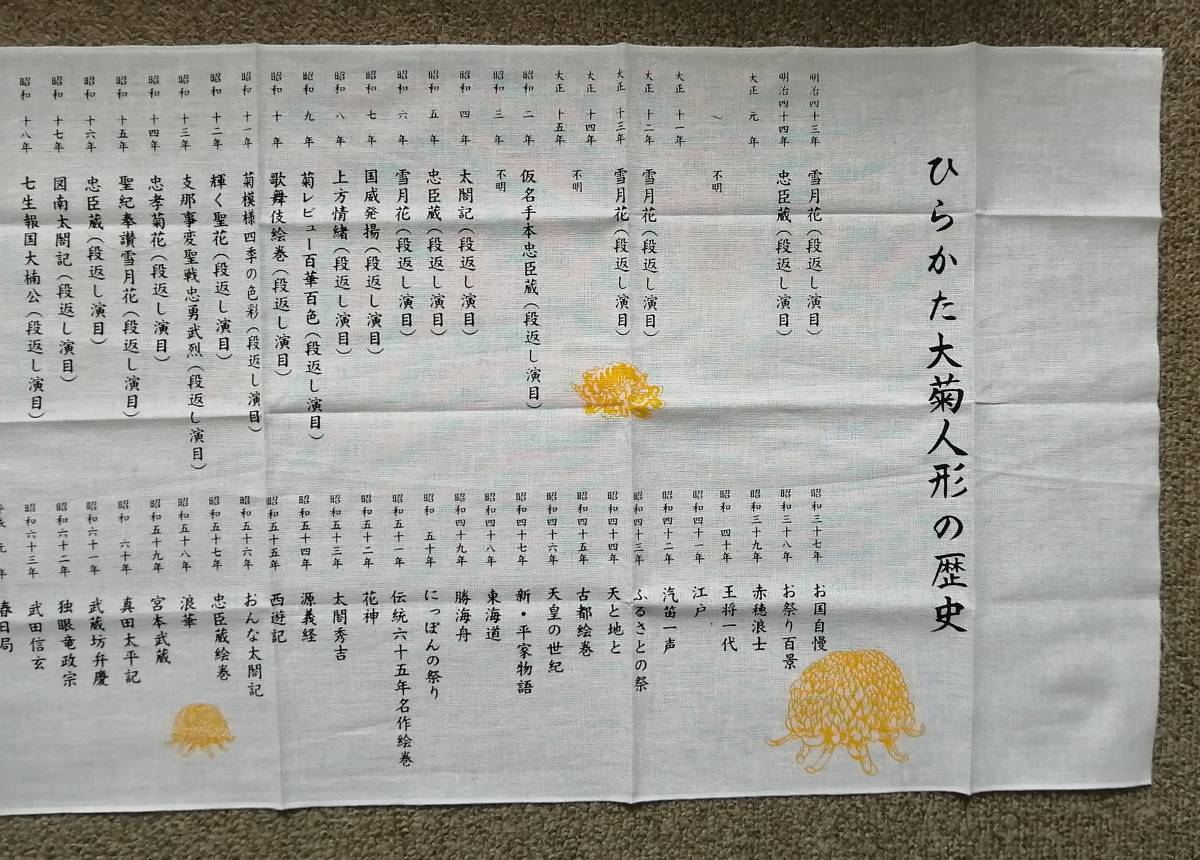 ひらかた大菊人形の歴史
明治四十三年 雪月花(段返し演目)
明治四十四年 忠臣蔵(段返し演目)
大正 元 年
〜 不明
大正 十一年
大正 十二年 雪月花(段返し演目)
大正 十三年 雪月花(段返し演目)
大正 十四年
大正 十五年 不明
昭和 二 年 仮名手本忠臣蔵(段返し演目)
昭和 三 年 不明
昭和 四 年 太閤記(段返し演目)
昭和 五 年 忠臣蔵(段返し演目)
昭和 六 年 雪月花(段返し演目)
昭和 七 年 国威発揚(段返し演目)
昭和 八 年 上方情緒(段返し演目)
昭和 九 年 菊レビュー百華百色(段返し演目)
昭和 十 年 歌舞伎絵巻(段返し演目)
昭和 十一年 菊模様四季の色彩(段返し演目)
昭和 十二年 輝く聖花(段返し演目)
昭和 十三年 支那事変聖戦忠勇武烈(段返し演目)
昭和 十四年 忠孝菊花(段返し演目)
昭和 十五年 聖紀奉讃雪月花(段返し演目)
昭和 十六年 忠臣蔵(段返し演目)
昭和 十七年 図南太閤記(段返し演目)
昭和 十八年 七生報国大楠公(段返し演目)
昭和三十七年 お国自慢
昭和三十八年 お祭り百景
昭和三十九年 赤穂浪士
昭和 四十年 王将一代
昭和四十一年 江戸
昭和四十二年 汽笛一声
昭和四十三年 ふるさとの祭
昭和四十四年 天と地と
昭和四十五年 古都絵巻
昭和四十六年 天皇の世紀
昭和四十七年 新・平家物語
昭和四十八年 東海道
昭和四十九年 勝海舟
昭和 五十年 にっぽんの祭り
昭和五十一年 伝統六十五年名作絵巻
昭和五十二年 花神
昭和五十三年 太閤秀吉
昭和五十四年 源義経
昭和五十五年 西遊記
昭和五十六年 おんな太閤記
昭和五十七年 忠臣蔵絵巻
昭和五十八年 浪華
昭和五十九年 宮本武蔵
昭和 六十年 真田太平記
昭和六十一年 武蔵坊弁慶
昭和六十二年 独眼竜政宗
昭和六十三年 武田信玄
元 年 春日局